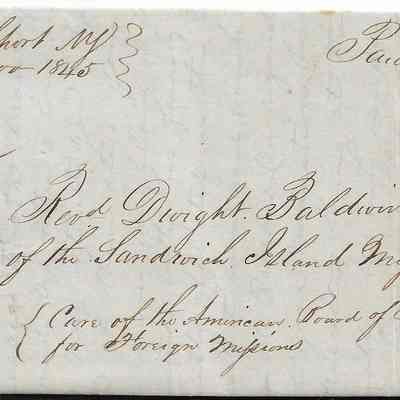 short NY
Nov 1845
Paid
Revd Dwight. Baldwin
of the Sandwich Island
Care of the American. Board of C
for Foreign Missions